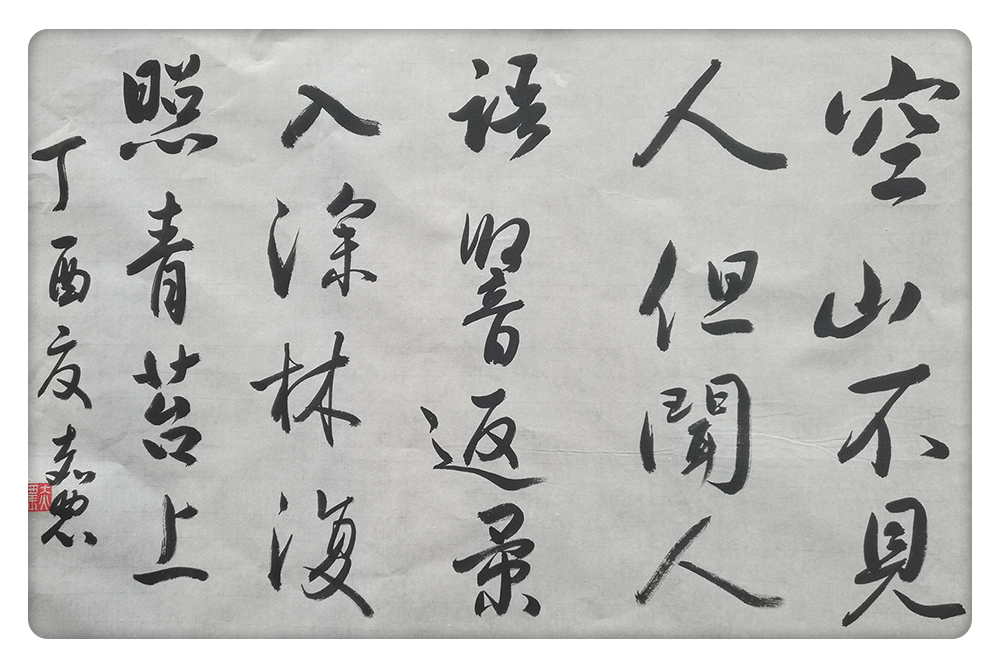 空山不見
人但聞人
語響返景
入深林復
照青苔上
丁酉夏